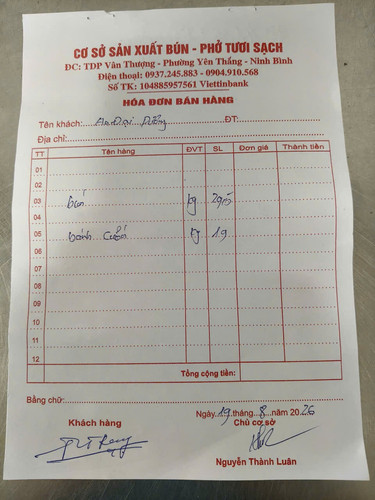 CƠ SỞ SẢN XUẤT BÚN - PHỞ TƯƠI SẠCH
ĐC: TDP Vân Thượng - Phường Yên Thắng - Ninh Bình
Điện thoại: 0937.245.883 - 0904.910.568
Số TK: 104885957561 Viettinbank
HÓA ĐƠN BÁN HÀNG
Tên khách: ĐT:
Địa chỉ:
TT Tên hàng ĐVT SL Đơn giá Thành tiền
01
02
03 bún kg
04
05 bánh cuốn kg 19
06
07
08
09
10
11
12
Tổng cộng tiền:
Bằng chữ:
Ngày 19 tháng 8 năm 2026
Khách hàng Chủ cơ sở
Nguyễn Thành Luân